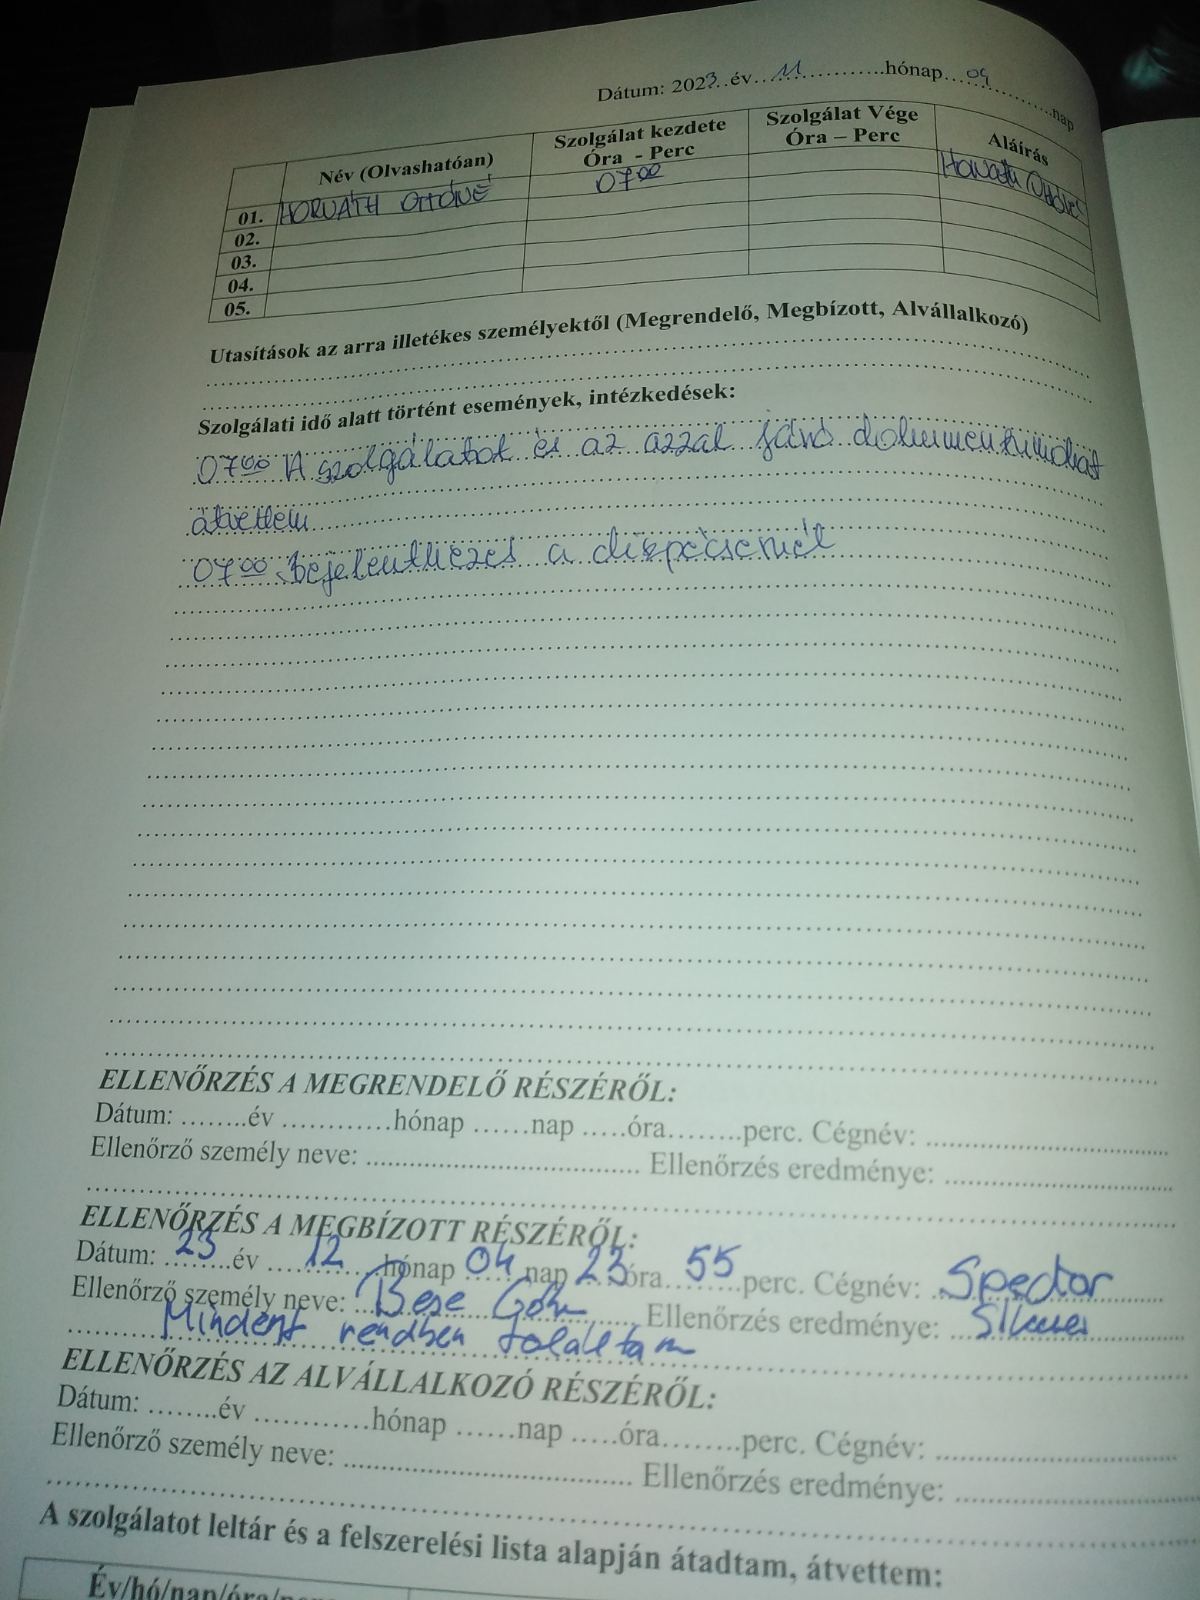 Dátum: 2023..év...11..............hónap....09..............nap
Név (Olvashatóan) Szolgálat kezdete Óra - Perc Szolgálat Vége Óra – Perc Aláírás
01. HORVÁTH OTTÓNÉ 07⁰⁰ Horváth Ottóné
02.
03.
04.
05.
Utasítások az arra illetékes személyektől (Megrendelő, Megbízott, Alvállalkozó)
Szolgálati idő alatt történt események, intézkedések:
07⁰⁰ A szolgálatot és az azzal járó dokumentumokat
átvettem
07⁰⁰ Bejelentkezés a diszpécsernél
ELLENŐRZÉS A MEGRENDELŐ RÉSZÉRŐL:
Dátum: ........év ............hónap ......nap .....óra........perc. Cégnév: ..............................
Ellenőrző személy neve: ................................... Ellenőrzés eredménye: .............................
ELLENŐRZÉS A MEGBÍZOTT RÉSZÉRŐL:
Dátum: 23 év 12 hónap 04 nap 23 óra 55 perc. Cégnév: Spector
Ellenőrző személy neve: Bese Ellenőrzés eredménye:
Mindent rendben találtam
ELLENŐRZÉS AZ ALVÁLLALKOZÓ RÉSZÉRŐL:
Dátum: ........év ............hónap ......nap .....óra........perc. Cégnév: ..............................
Ellenőrző személy neve: ................................... Ellenőrzés eredménye: .............................
A szolgálatot leltár és a felszerelési lista alapján átadtam, átvettem:
Év/hó/nap/óra/